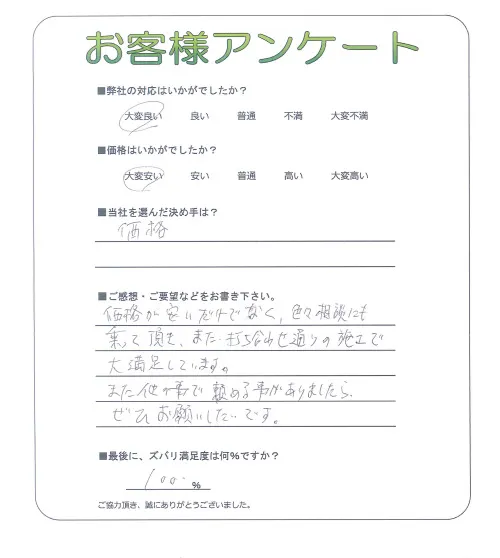 お客様アンケート
■弊社の対応はいかがでしたか？
大変良い 良い 普通 不満 大変不満
■価格はいかがでしたか？
大変安い 安い 普通 高い 大変高い
■当社を選んだ決め手は？
価格
■ご感想・ご要望などをお書き下さい。
価格が安いだけでなく、色々相談にも
乗って頂き、また、打ち合わせ通りの施工で
大満足しています。
また他の事で頼める事がありましたら、
ぜひお願いしたいです。
■最後に、ズバリ満足度は何%ですか？
100 %
ご協力頂き、誠にありがとうございました。